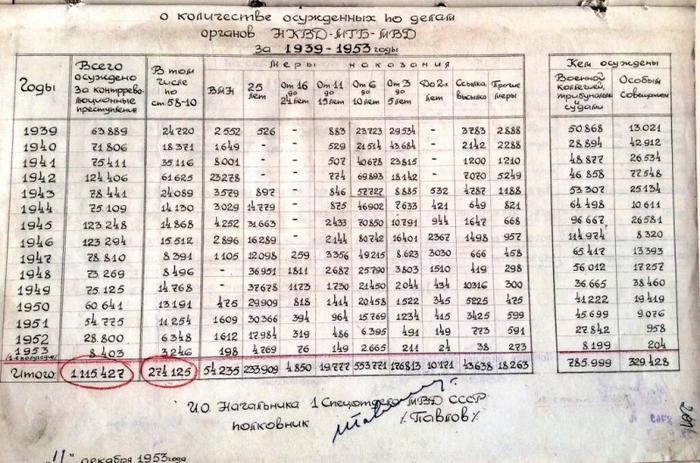 о количестве осужденных по делам
органов НКВД-МГБ-МВД
за 1939-1953 годы
Годы Всего осуждено за контррево-люционные преступления В том числе по ст 58-10 Меры наказания Кем осуждены
ВМН 25 лет От 16 до 24 лет От 11 до 15 лет От 6 до 10 лет От 3 до 5 лет До 2х лет Ссылка высылка Прочие меры Военной коллегией, трибуналом, судами Особым совещанием
1939 63889 24720 2552 526 883 23723 29534 - 3783 2888 50868 13.021
1940 71806 18371 1649 - - 529 21514 43684 - 2142 2288 28894 42.912
1941 75411 35116 8.001 - - 507 40678 23815 - 1200 1210 48877 26534
1942 124406 61625 23278 - - 774 69893 18142 - 7070 5249 46858 77548
1943 78441 24089 3579 897 - 846 57727 8885 532 4787 1188 53307 25134
1944 75.109 14.130 3.029 14779 - 875 46902 7633 421 649 821 64498 10.611
1945 123248 14868 4252 31663 - 2433 70850 10.791 944 1647 668 96667 26581
1946 123294 15512 2896 16289 - 2144 80742 16401 2367 1498 957 114974 8320
1947 78810 8391 1105 12098 259 3356 49215 8623 3030 666 458 65417 13393
1948 73269 8496 - 36951 1811 2687 25790 3803 1510 419 298 56.012 17257
1949 75.125 14.768 - 37678 1173 1730 21450 2044 434 10316 300 36.665 38460
1950 60641 13.191 475 29909 818 1414 20458 1522 345 5225 475 41222 19419
1951 54775 11254 1609 30366 394 964 15769 1234 415 3425 599 45699 9.076
1952 28.800 6348 1612 17984 319 486 6395 491 149 773 591 27842 958
1953 8403 3246 198 4769 76 149 2665 211 24 38 273 8.199 204
Итого 1115427 274125 54235 233909 4850 19777 553721 176813 10.171 43638 18263 785.999 329428
И.О. Начальника 1 Спецотдела МВД СССР
полковник /Павлов/
"11" декабря 1953 года